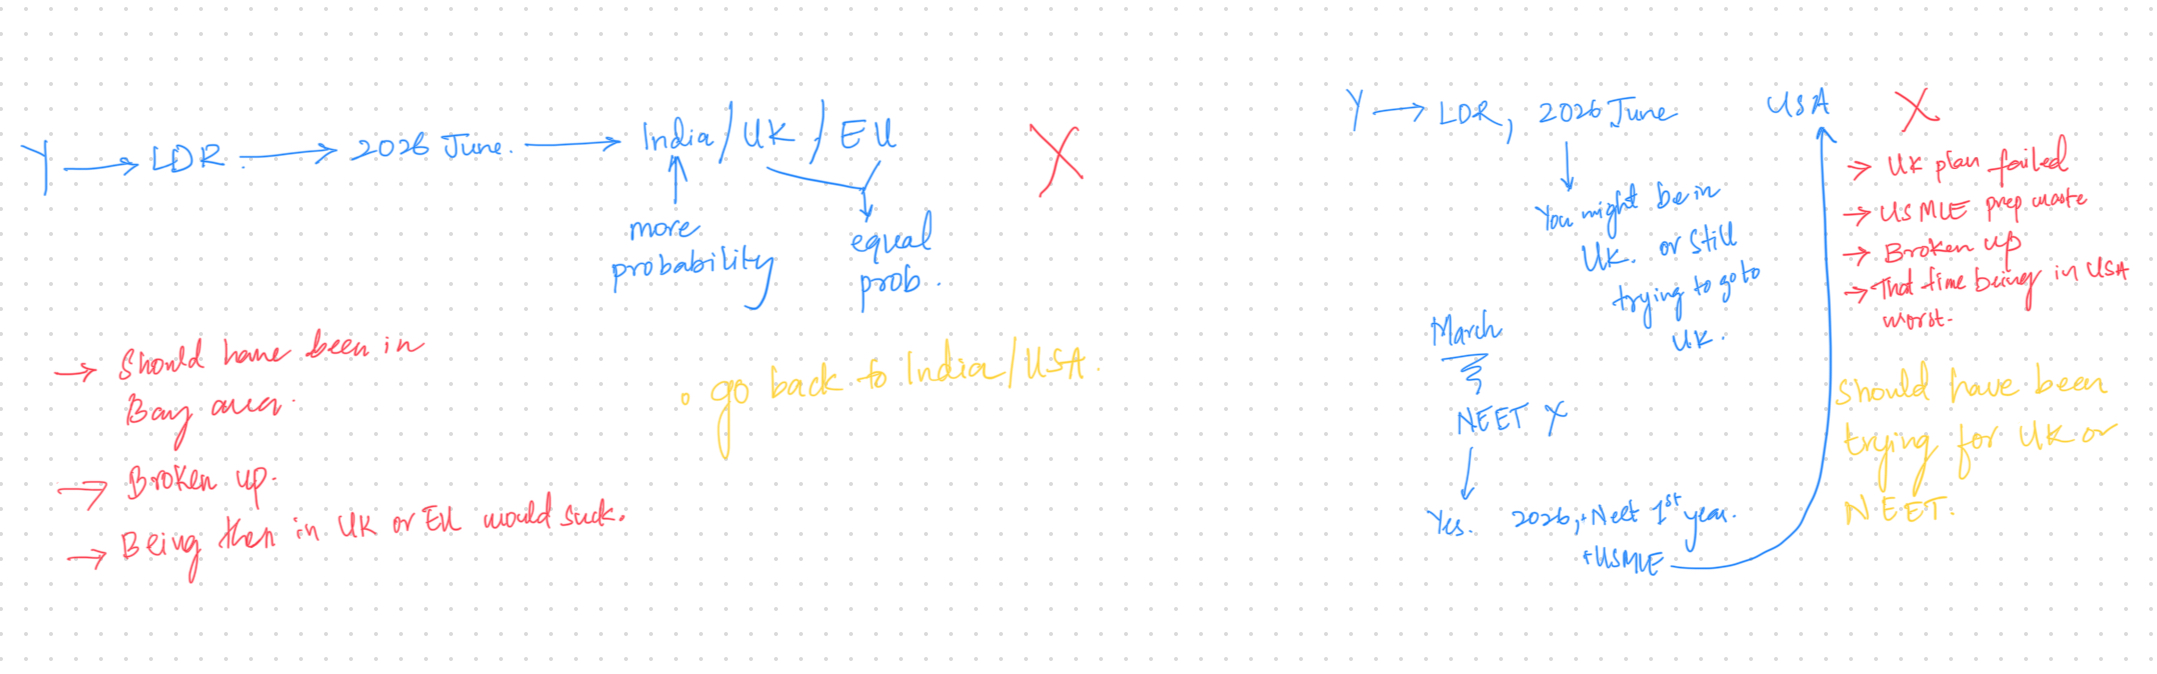 Y → LDR → 2026 June. → India / UK / EU X
more
probability
equal
prob.
→ Should have been in
Bay area.
→ Broken up.
→ Being then in UK or EU would suck.
go back to India/USA.
Y → LDR, 2026 June
You might be in
UK. or still
trying to go to
UK.
March
NEET X
Yes. 2026, + Neet 1st year.
+USMLE
USA X
→ UK plan failed
→ USMLE prep waste
→ Broken up
→ That time being in USA
worst.
Should have been
trying for UK or
NEET.